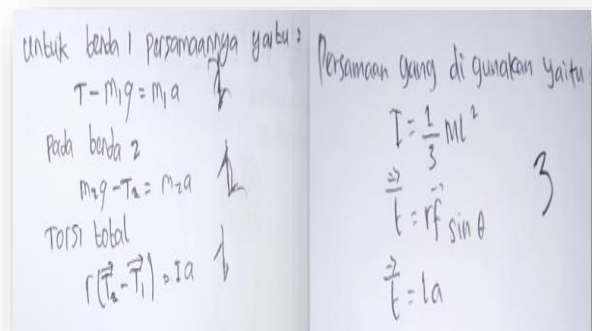 untuk benda 1 persamaannya yaitu:
T - m₁g = m₁a
pada benda 2
m₂g - T₂ = m₂a
Torsi total
r(T⃗₂ - T⃗₁) = Ia
Persamaan yang di gunakan yaitu
I = 1/3 Ml²
t⃗ = rf⃗ sin θ
t⃗ = la
3